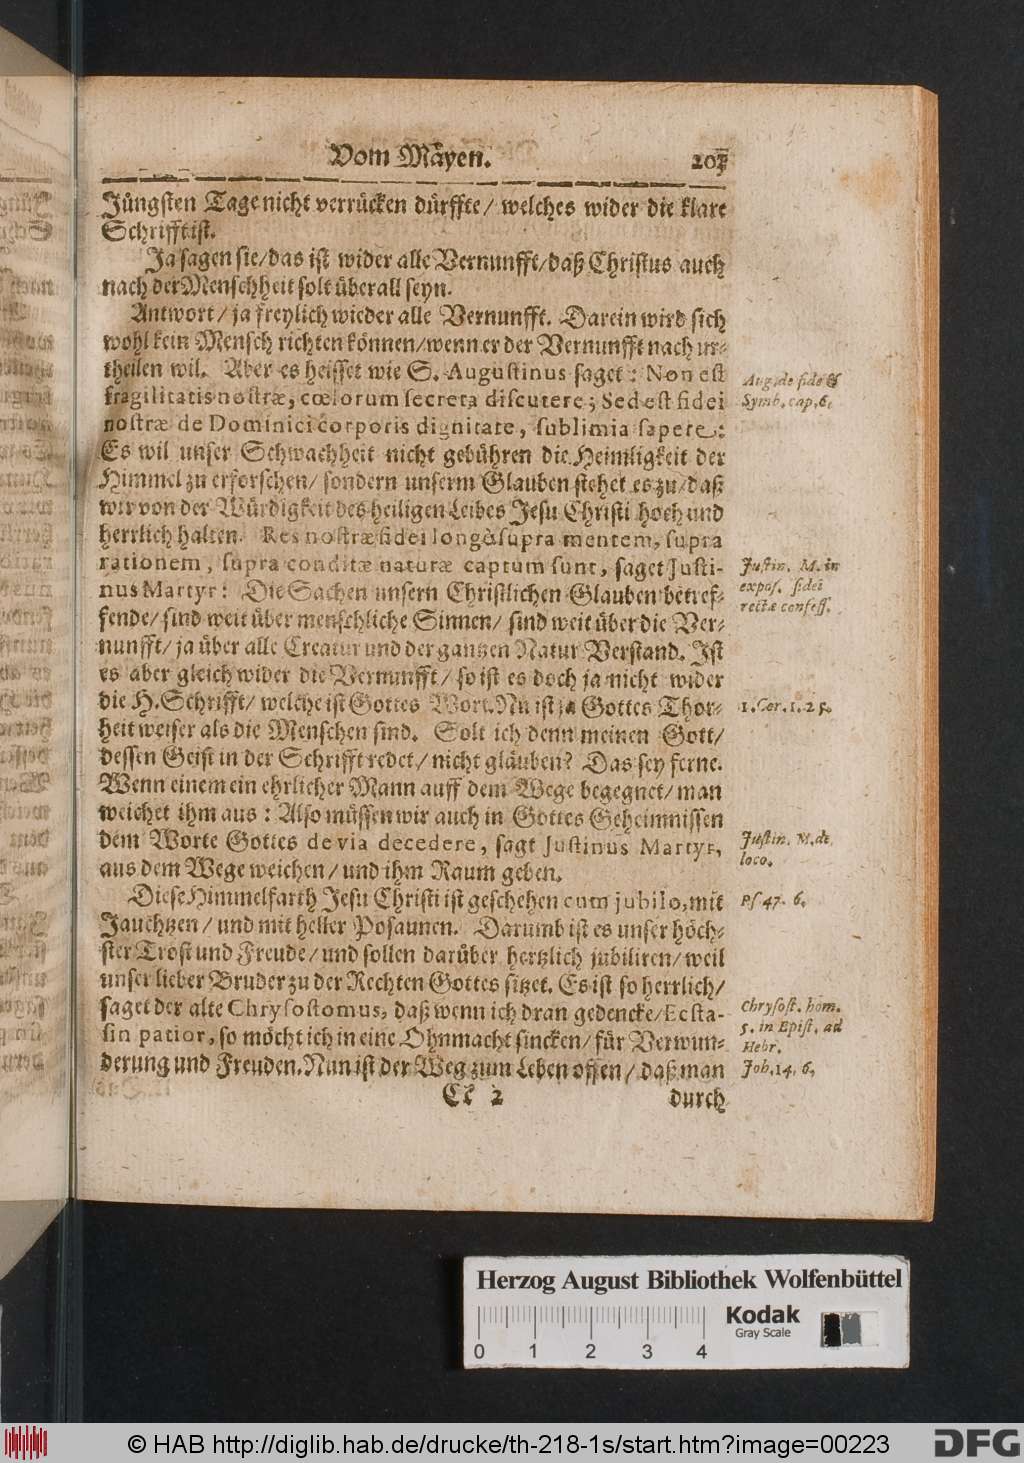 Vom Mäyen. 203
Jüngsten Tage nicht verrücken dürffte/ welches wider die klare
Schrifft ist.
Ja sagen sie/ das ist wider alle Vernunfft/ daß Christus auch
nach der Menschheit solt überall seyn.
Antwort/ ja freylich wieder alle Vernunfft. Darein wird sich
wohl kein Mensch richten können/ wenn er der Vernunfft nach ur-
theilen wil. Aber es heisset wie S. Augustinus saget: Non est
Aug. de fide &
fragilitatis nostræ, cœlorum secreta discutere; Sed est fidei
Symb. cap. 6.
nostræ de Dominici corporis dignitate, sublimia sapere:
Es wil unser Schwachheit nicht gebühren die Heimligkeit der
Himmel zu erforschen/ sondern unserm Glauben stehet es zu/ daß
wir von der Würdigkeit des heiligen Leibes Jesu Christi hoch und
herrlich halten. Res nostræ fidei longè supra mentem, supra
rationem, supra conditæ naturæ captum sunt, saget Justi-
Justin. M. in
nus Martyr: Die Sachen unsern Christlichen Glauben betref-
expos. fidei
fende/ sind weit über menschliche Sinnen/ sind weit über die Ver-
rectæ confess.
nunfft/ ja über alle Creatur und der gantzen Natur Verstand. Ist
es aber gleich wider die Vernunfft/ so ist es doch ja nicht wider
die H. Schrifft/ welche ist Gottes Wort. Nu ist ja Gottes Thor-
1. Cor. 1. 25.
heit weiser als die Menschen sind. Solt ich denn meinen Gott/
dessen Geist in der Schrifft redet/ nicht gläuben? Das sey ferne.
Wenn einem ein ehrlicher Mann auff dem Wege begegnet/ man
weichet ihm aus: Also müssen wir auch in Gottes Geheimnissen
dem Worte Gottes de via decedere, sagt Justinus Martyr,
Justin. M. de
loco.
aus dem Wege weichen/ und ihm Raum geben.
Diese Himmelfarth Jesu Christi ist geschehen cum jubilo, mit
Ps 47. 6.
Jauchtzen/ und mit heller Posaunen. Darumb ist es unser höch-
ster Trost und Freude/ und sollen darüber hertzlich jubiliren/ weil
unser lieber Bruder zu der Rechten Gottes sitzet. Es ist so herrlich/
saget der alte Chrysostomus, daß wenn ich dran gedencke/ Ecsta-
Chrysost. hom.
sin patior, so möcht ich in eine Ohnmacht sincken/ für Verwun-
5. in Epist. ad
Hebr.
derung und Freuden. Nun ist der Weg zum Leben offen/ daß man
Joh. 14. 6.
Cc 2 durch
Herzog August Bibliothek Wolfenbüttel
Kodak
Gray Scale
0 1 2 3 4
© HAB http://diglib.hab.de/drucke/th-218-1s/start.htm?image=00223
DFG